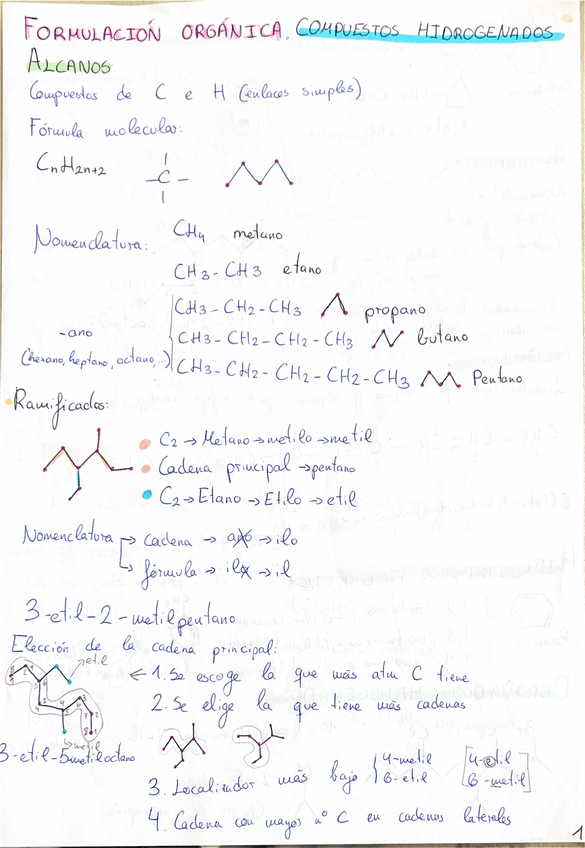 FORMULACIÓN ORGÁNICA. COMPUESTOS HIDROGENADOS
ALCANOS
Compuestos de C e H (enlaces simples)
Fórmula molecular:
CnH2n+2 -C-
Nomenclatura: CH4 metano
CH3-CH3 etano
CH3-CH2-CH3 propano
-ano CH3-CH2-CH2-CH3 butano
(hexano, heptano, octano,...) CH3-CH2-CH2-CH2-CH3 Pentano
Ramificados:
C2→Metano→metilo→metil
Cadena principal→pentano
C2→Etano→Etilo→etil
Nomenclatura → cadena → ano → ilo
→ fórmula → ilo → il
3-etil-2-metilpentano
Elección de la cadena principal:
etil
← 1. Se escoge la que más atm C tiene
2. Se elige la que tiene más cadenas
metil
3-etil-5metiloctano
3. Localizador más bajo { 4-metil 6-etil [4-etil 6-metil]
4. Cadena con mayor nº C en cadenas laterales
1